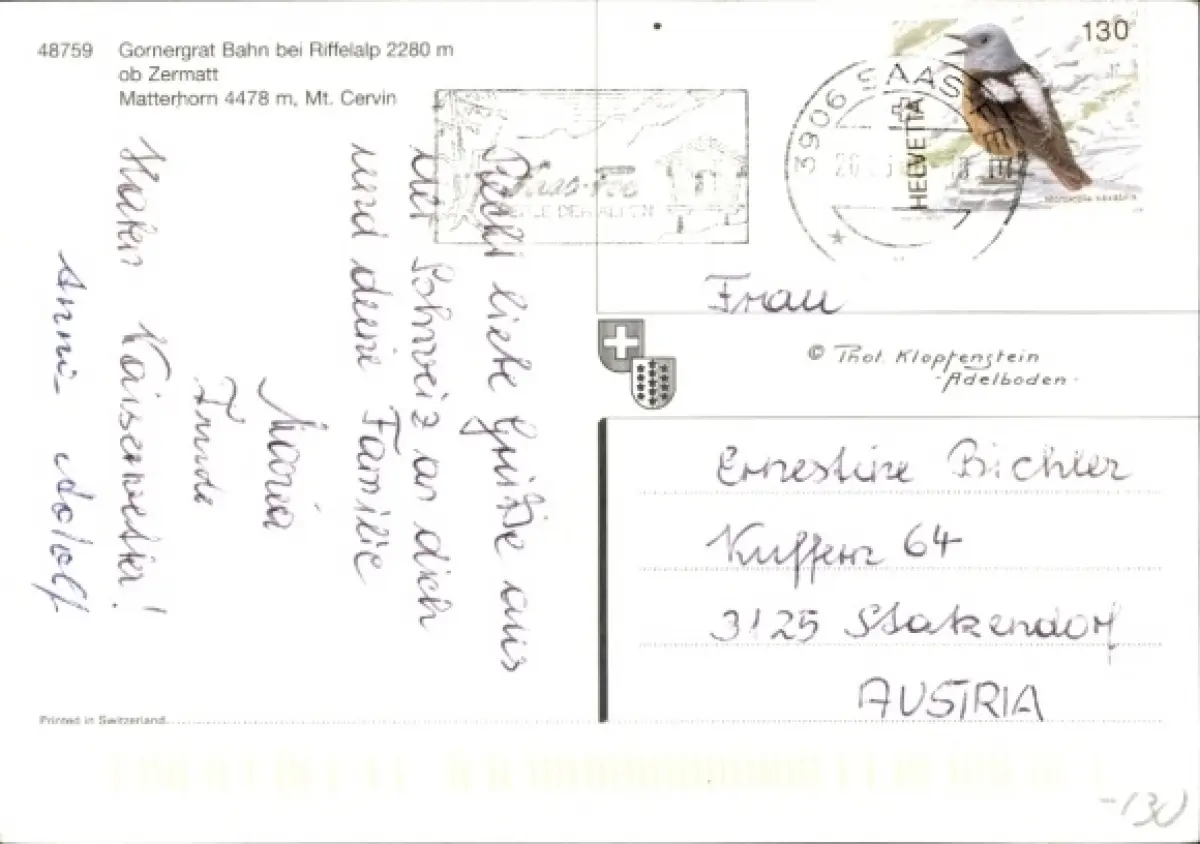 48759 Gornergrat Bahn bei Riffelalp 2280 m
ob Zermatt
Matterhorn 4478 m, Mt. Cervin
Recht liebe Grüße aus
der Schweiz an dich
und deine Familie
Maria
Trude
Haben Kaiserwetter!
Anni Adolf
Printed in Switzerland
130
HELVETIA
3906 SAAS-FEE
Saas-Fee
PERLE DER ALPEN
Frau
© Phot. Klopfenstein
-Adelboden-
Ernestine Bichler
Kuffern 64
3125 Statzendorf
AUSTRIA
-130